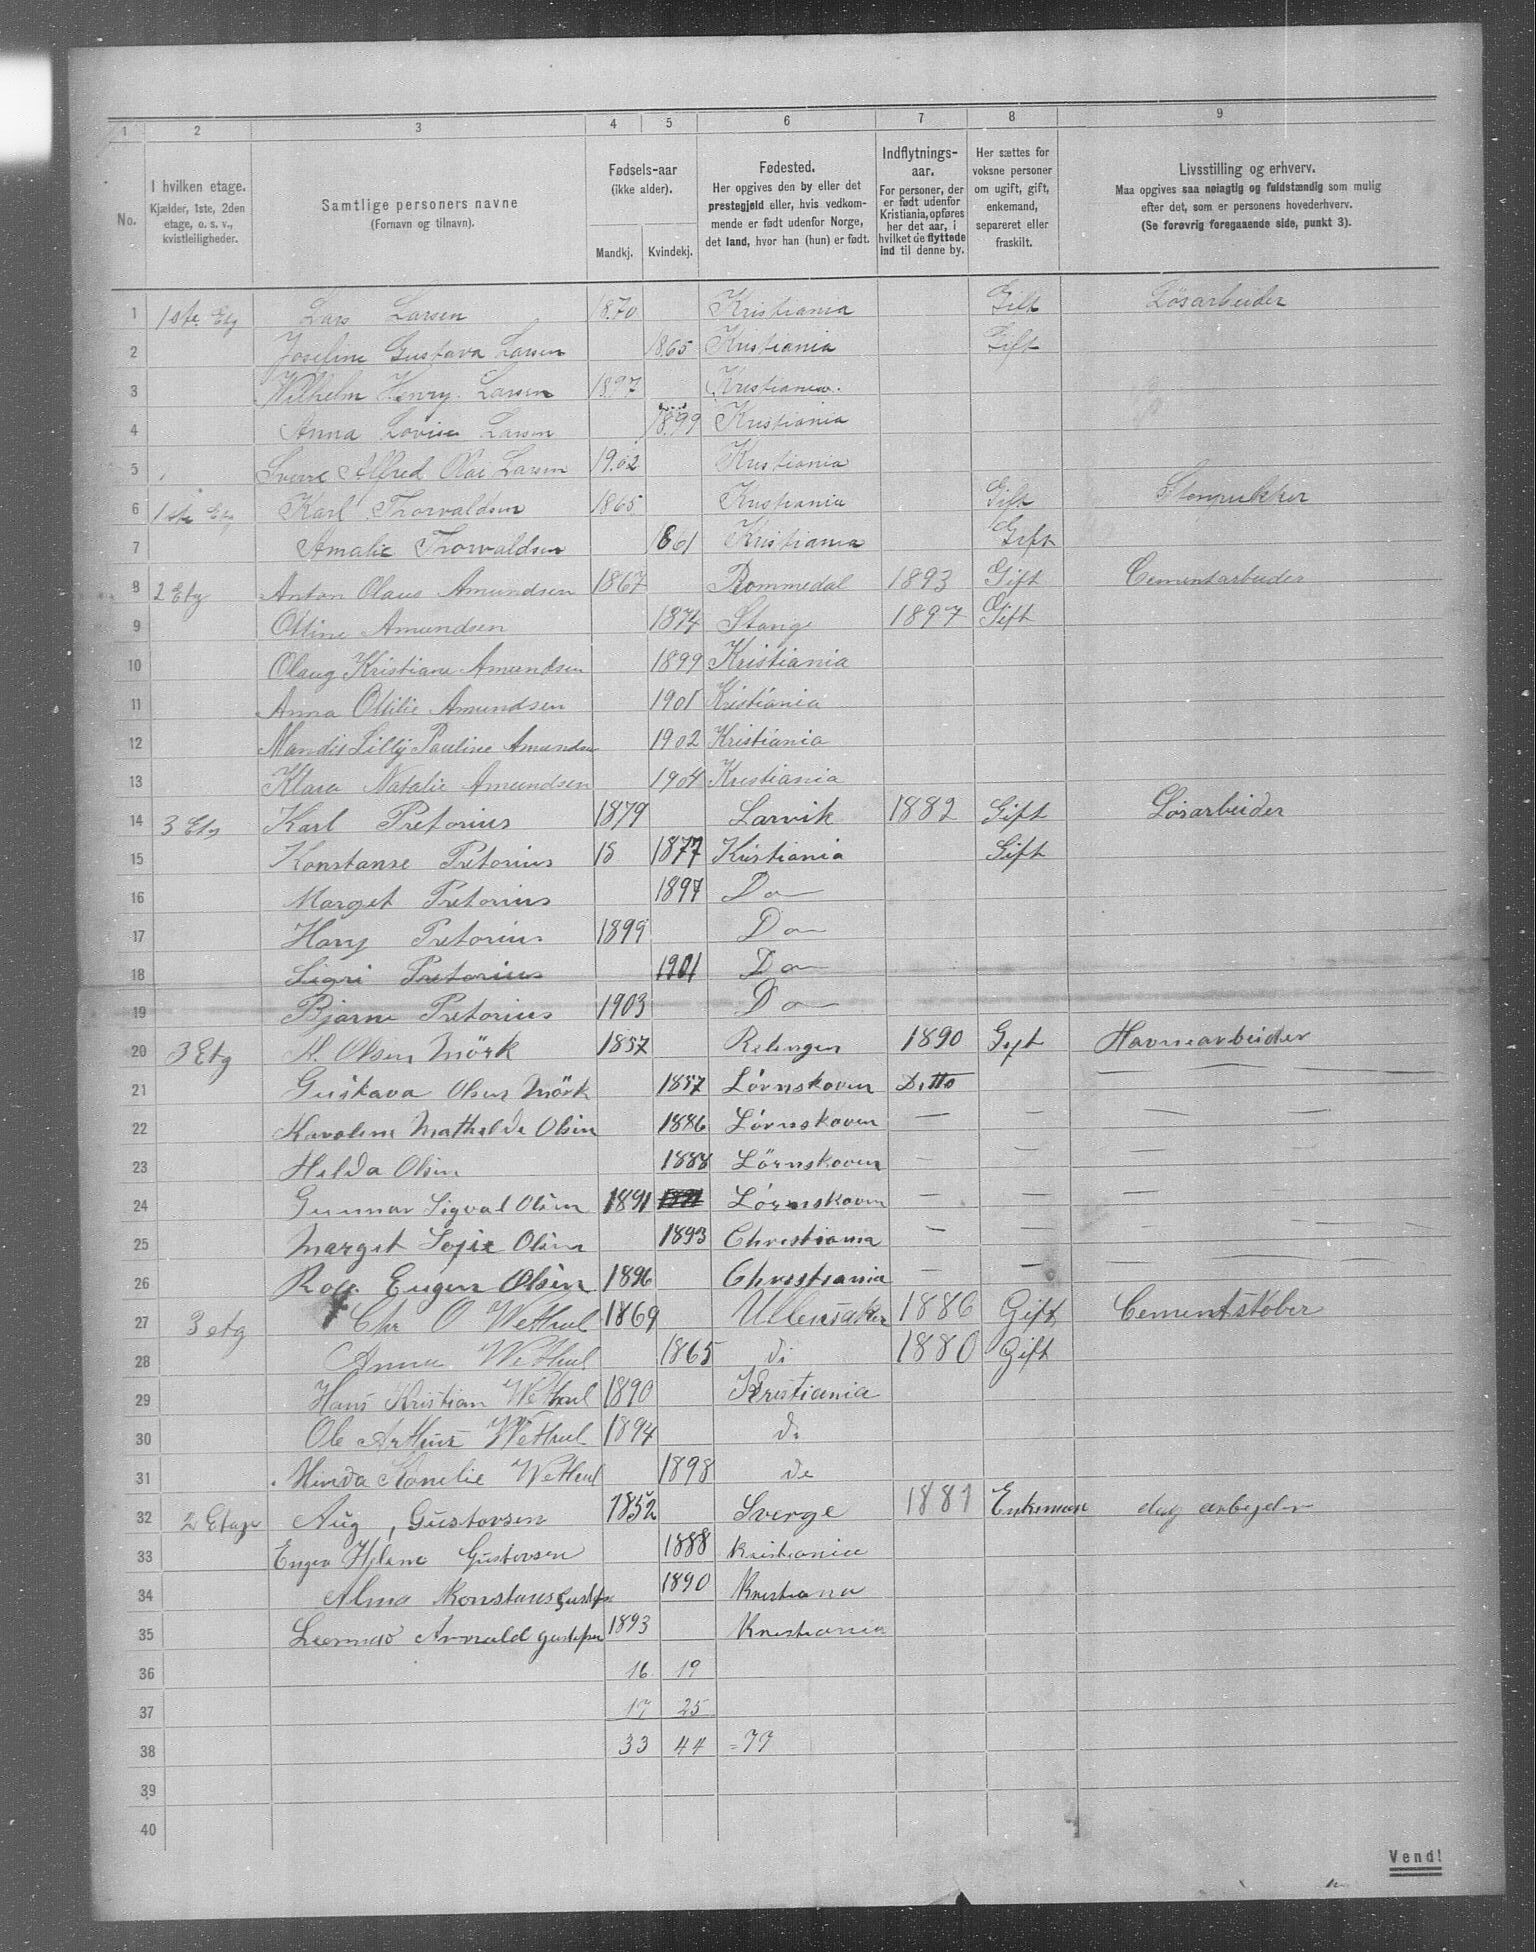 1 2 3 4 5 6 7 8 9
No.
I hvilken etage. Kjælder, 1ste, 2den etage, o. s. v., kvistleiligheder.
Samtlige personers navne (Fornavn og tilnavn).
Fødsels-aar (ikke alder). Mandkj. Kvindekj.
Fødested. Her opgives den by eller det prestegjeld eller, hvis vedkommende er født udenfor Norge, det land, hvor han (hun) er født.
Indflytnings-aar. For personer, der er født udenfor Kristiania, opføres her det aar, i hvilket de flyttede ind til denne by.
Her sættes for voksne personer om ugift, gift, enkemand, separeret eller fraskilt.
Livsstilling og erhverv. Maa opgives saa nøiagtig og fuldstændig som mulig efter det, som er personens hovederhverv. (Se forøvrig foregaaende side, punkt 3).
1 1ste Etg Lars Larsen 1870 Kristiania Gift Løsarbeider
2 Josefine Gustava Larsen 1865 Kristiania Gift
3 Wilhelm Henry Larsen 1897 Kristiania.
4 Anna Lovise Larsen 1899 Kristiania
5 Sverre Alfred Olai Larsen 1902 Kristiania
6 1ste Etg Karl Thorvaldsen 1865 Kristiania Gift Stenpukker
7 Amalie Thorvaldsen 1861 Kristiania Gift
8 2 Etg Anton Olaus Amundsen 1867 Rommedal 1893 Gift Cementarbeider
9 Olline Amundsen 1874 Stange 1897 Gift
10 Olaug Kristiane Amundsen 1899 Kristiania
11 Anna Otilie Amundsen 1901 Kristiania
12 Mandis Lilly Pauline Amundsen 1902 Kristiania
13 Klara Natalie Amundsen 1904 Kristiania
14 3 Etg Karl Pretorius 1879 Larvik 1882 Gift Løsarbeider
15 Konstanse Pretorius 18 1877 Kristiania Gift
16 Marget Pretorius 1897 Do
17 Harry Pretorius 1899 Do
18 Sigri Pretorius 1901 Do
19 Bjarne Pretorius 1903 Do
20 3 Etg A. Olsen Mörk 1857 Relingen 1890 Gift Havnearbeider
21 Gustava Olsen Mörk 1857 Lörnskoven Ditto — — — —
22 Karoline Mathilde Olsen 1886 Lörnskoven — — — —
23 Helda Olsen 1888 Lörnskoven — — — —
24 Gunnar Sigval Olsen 1891 Lörnskoven — — —
25 Marget Sofie Olsen 1893 Christiania — — — —
26 Roy. Eugen Olsen 1896 Christiania — — — —
27 3 etg Chr O Wethal 1869 Ullensaker 1886 Gift Cementstøber
28 Anna Wethal 1865 do 1880 Gift
29 Hans Kristian Wethal 1890 Kristiania
30 Ole Arthur Wethal 1894 do
31 Hinda Kornelie Wethal 1898 do
32 2 Etage Aug, Gustavsen 1852 Sverge 1881 Enkeman dag arbejder
33 Enga Helene Gustavsen 1888 Kristiania
34 Alma Konstans Gustfn 1890 Kristiana
35 Arnald Gustafsen 1893 Kristiania
36 16 19
37 17 25
38 33 44 = 77
39
40
Vend!